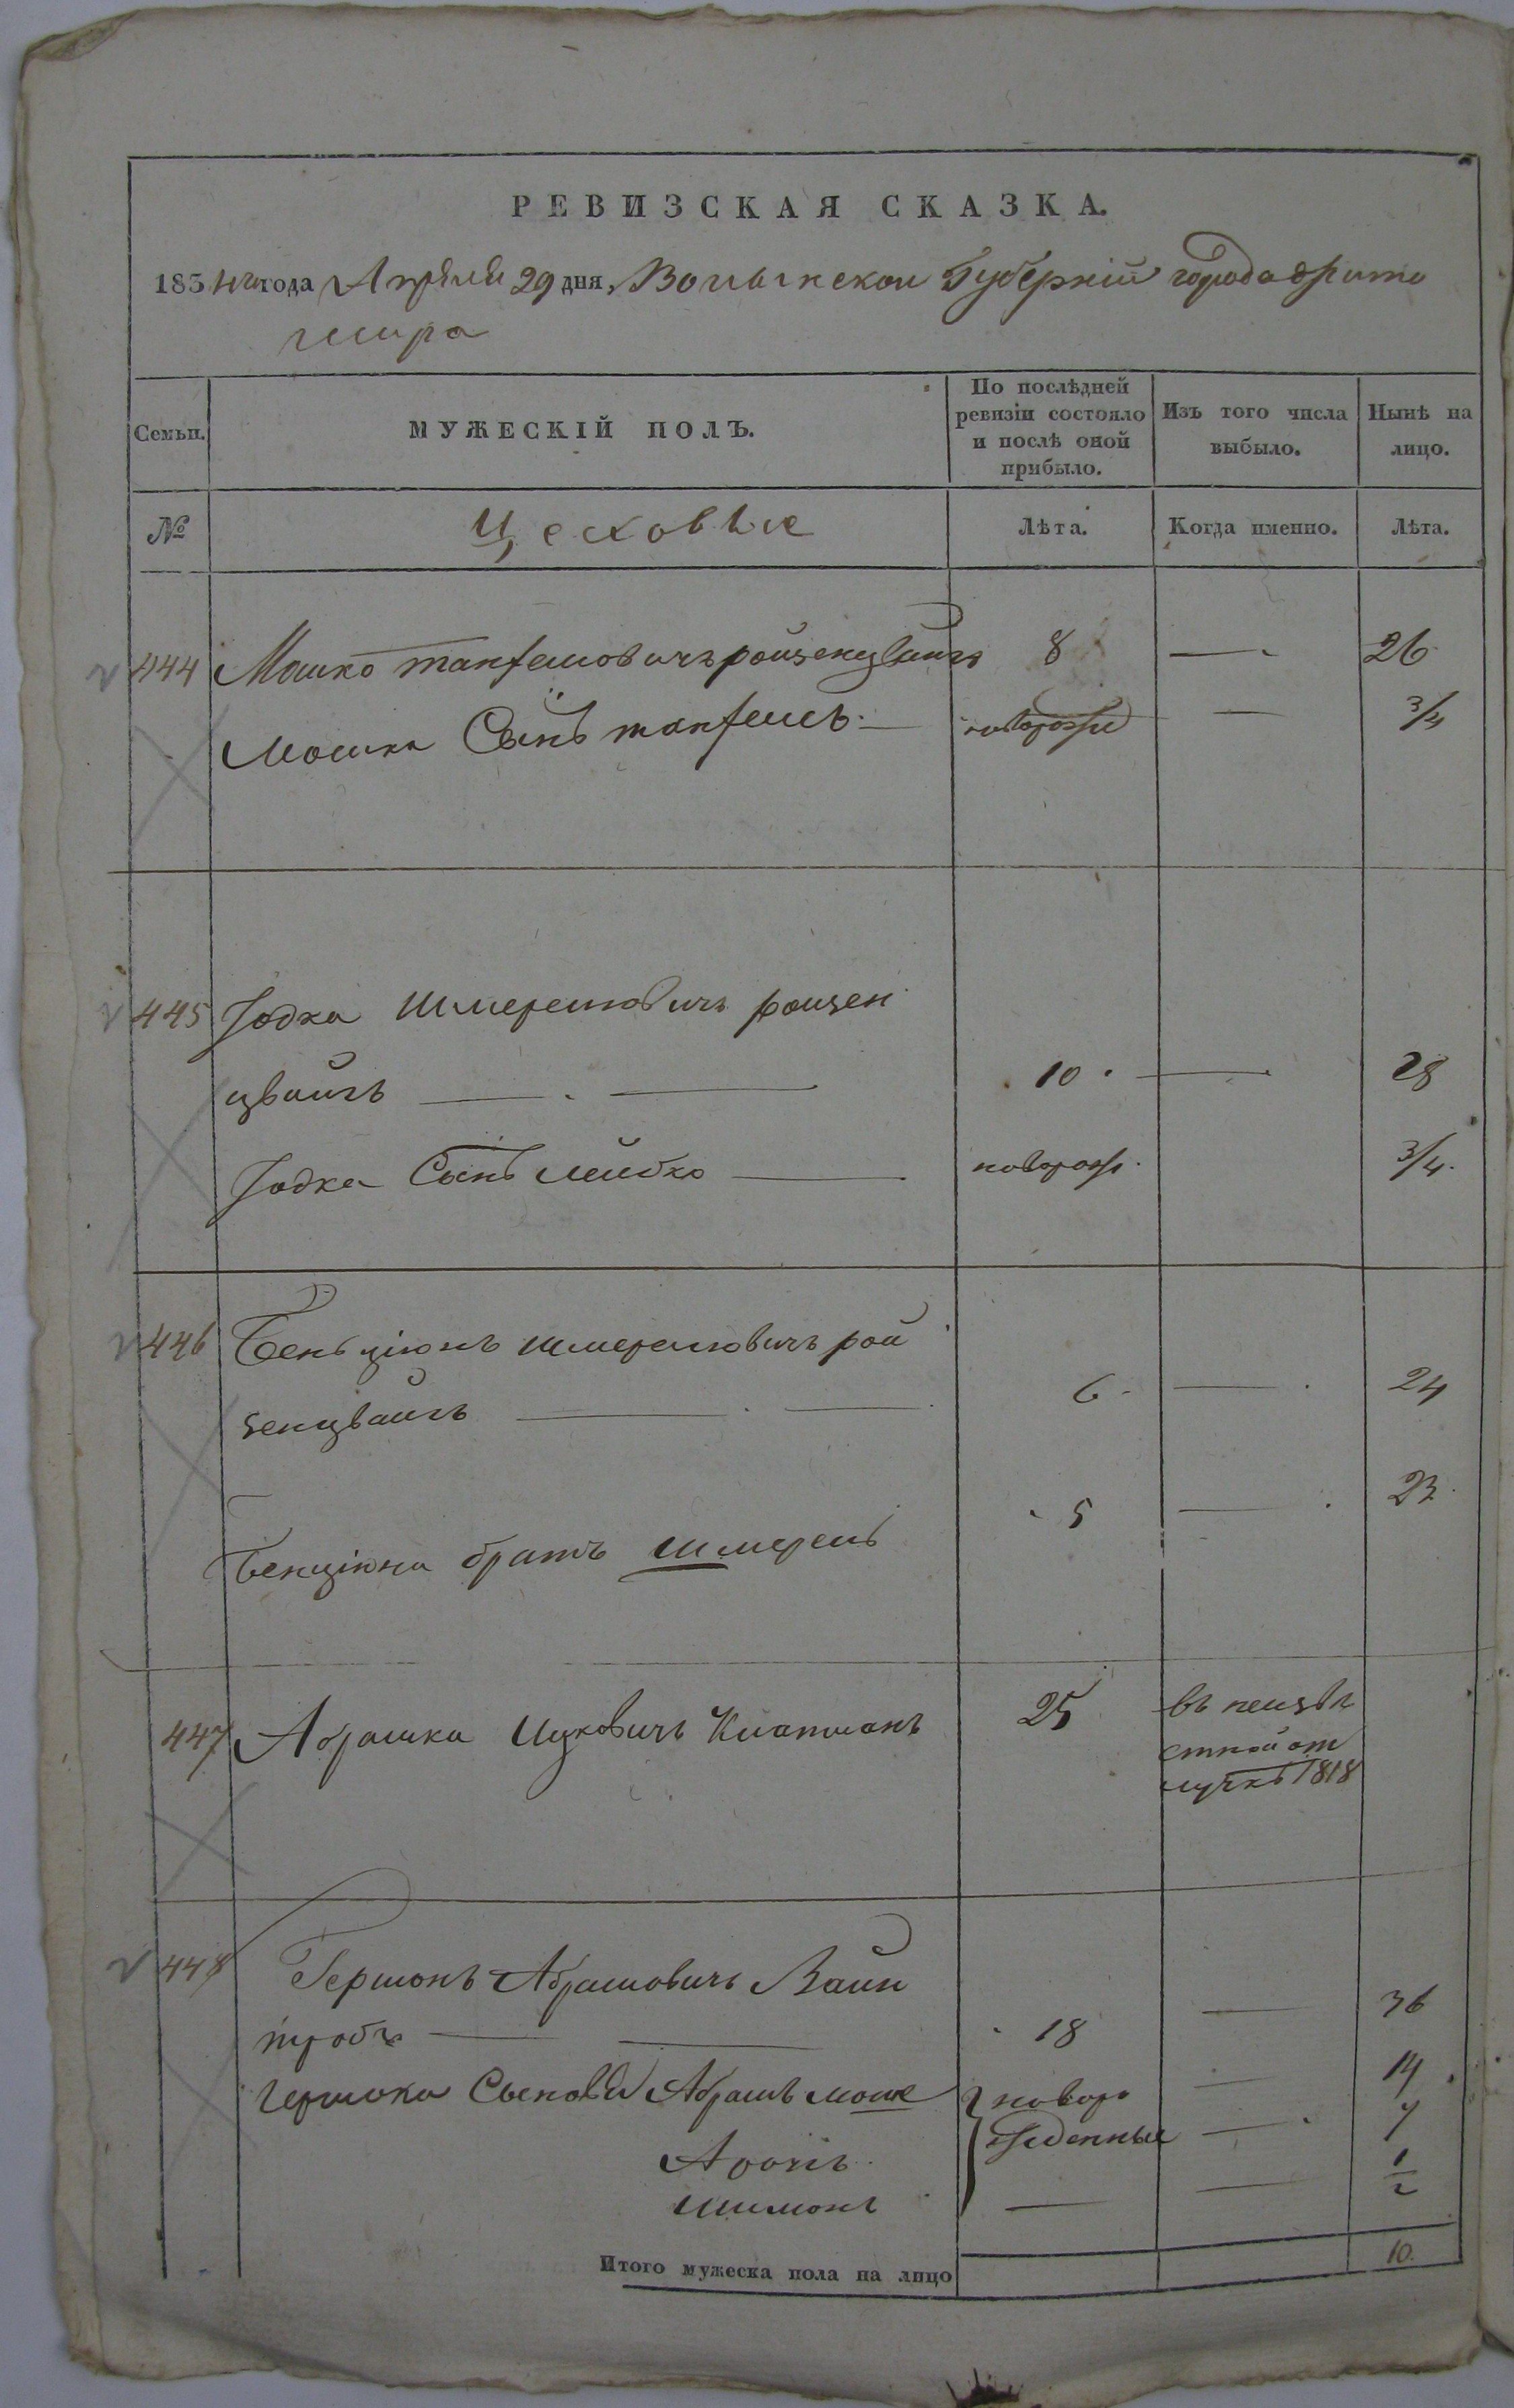 РЕВИЗСКАЯ СКАЗКА.
183 4го года Апреля 29 дня, Волынской Губерніи города Жито
мира
Семьи.
МУЖЕСКІЙ ПОЛЪ.
По послѣдней
ревизіи состояло
и послѣ оной
прибыло.
Изъ того числа
выбыло.
Нынѣ на
лицо.
№
Цеховые
Лѣта.
Когда именно.
Лѣта.
444 Мошко манѣлиовичъ ройзенцвайгъ 8 — 26
Мошка Сынъ — 3/4
445 Іодка Шмерелиовичъ ройзен
цвайгъ — — 10 — 28
Іодка Сынъ лейбко — поворож. 3/4.
446 Бенціюнъ шмерелювичъ рой
зенцвайгъ — — 6 — 24
Бенціюна братъ шмерель 5 — 23
447 Абрашка Ицковичъ Клатманъ 25 въ неизвѣ
стной от
лучкѣ 1818
448 Гершонъ Абрамовичъ Вайн
тробъ — — 18 — 36
гершона Сыновья Абрамъ моше новоро — 14
жденные
Аронъ — 7
Шимонъ — — 1/2
Итого мужеска пола на лицо 10.